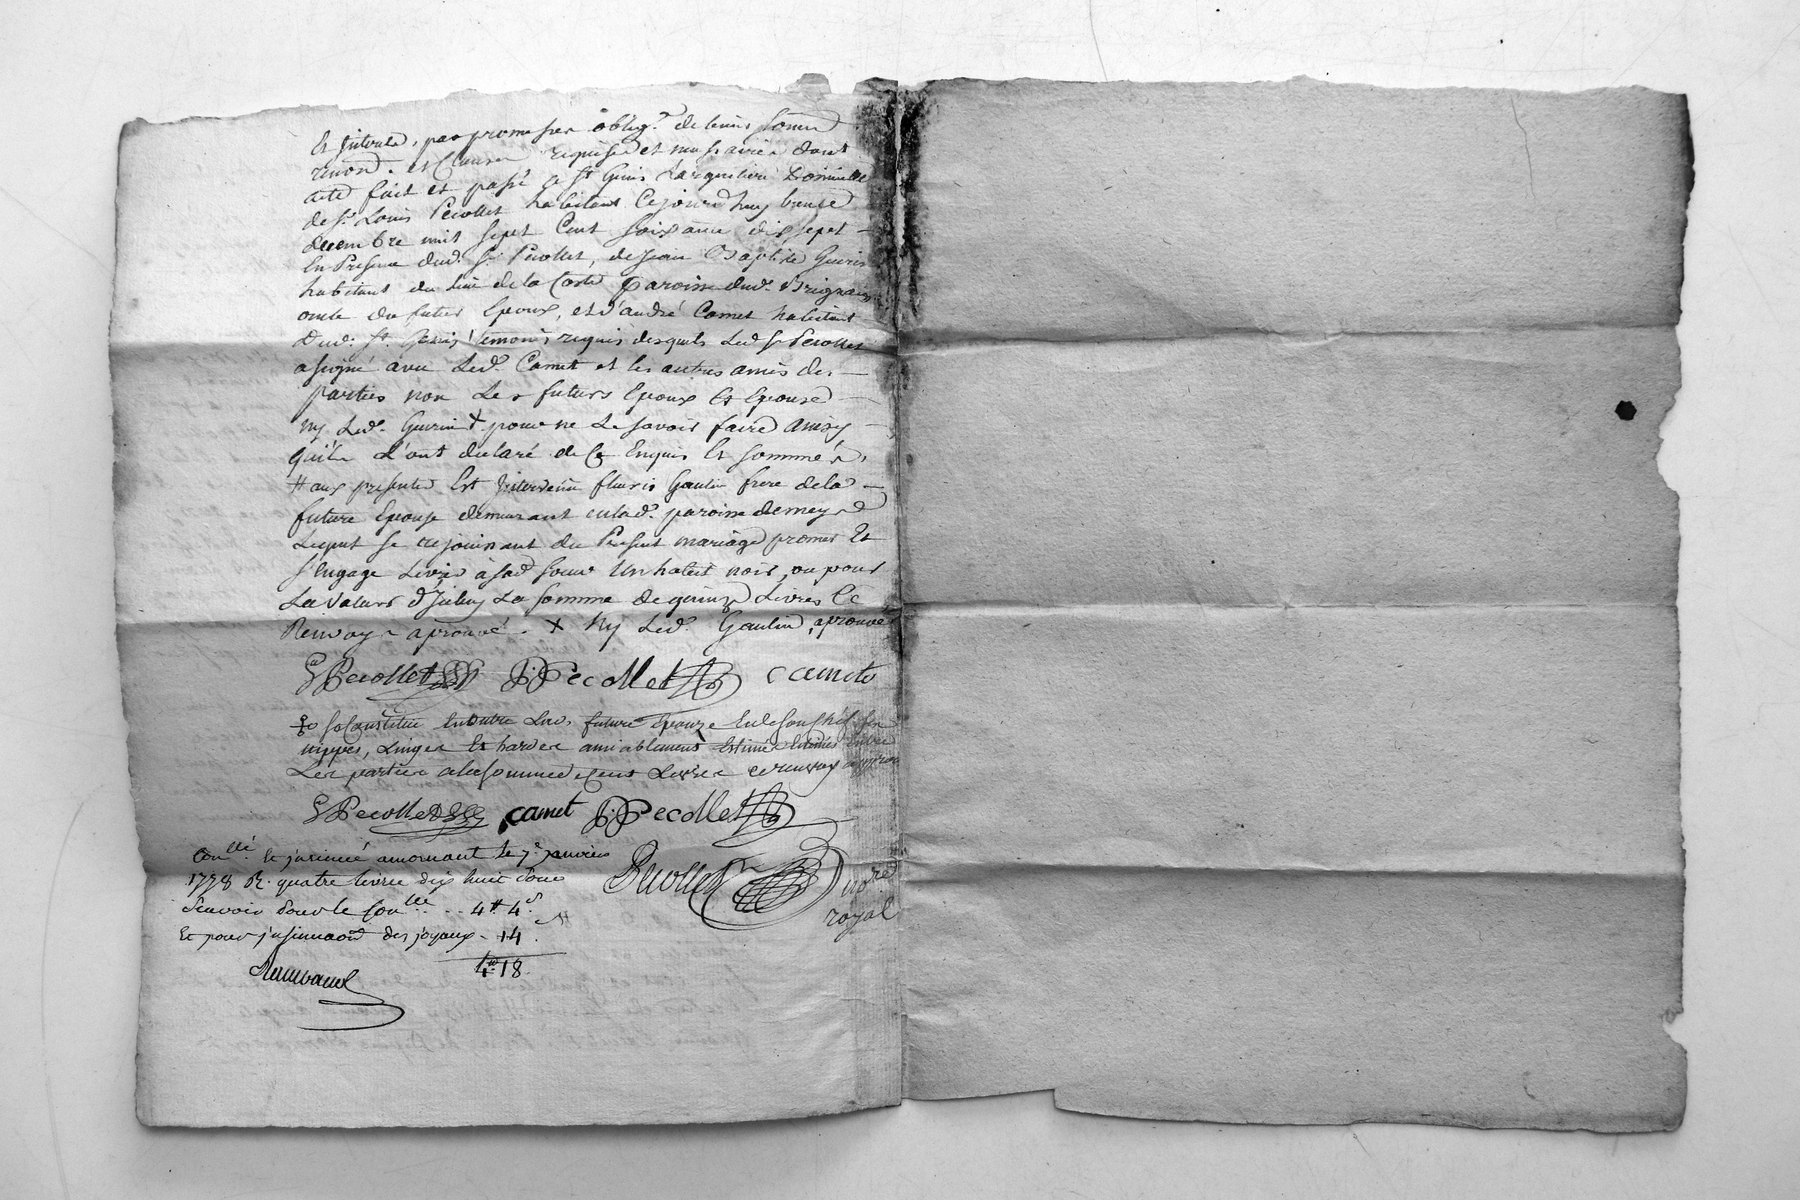 et Interets, par promesses oblig.ᵒⁿ de leurs
renon.ᵒⁿ et Clauses requises et necessaires dont
acte fait et passé a St Genis Largentiere Domicille
de Sr. Louis Pecollet habitant Cejourdhuy
Decembre mil sept Cent soixante dix sept
En Presence dud. Sr Pecollet, de Jean Baptiste Guerin
habitant du Lieu de la Coste paroisse dud. Brignais
oncle du futur Epoux, et d'andré Camet habitant
Dud. St. Genis, temoins requis desquels Led Sr Pecollet
a signé avec Led. Camet et les autres amis des
parties non Les futurs Epoux et Epouse
ny Led. Guerin X pour ne Le savoir faire ainsy
quils L'ont declaré de Ce Enquis Et sommés,
# aux presentes Est Intervenu fleuris Gaulin frere de la
future Epouse demeurant en lad. paroisse de meys
Lequel se rejouissant du Present mariage promet Et
s'engage Livrer a sad soeur Un habit noir, ou pour
La Valeur d'Iceluy La somme de quinze Livres Ce
Renvoy aprouvé. X Ny Led. Gaulin, aprouvé
Pecollet JPecollet camet
se Constitue Enoutre Lad. future Epouze
nippes, Linges Et hardes amiablement Estimés Entre
Les parties a la somme de Cent Livres ce renvoy
Pecollet camet JPecollet
Con.llé et insinué a mornant le 7e janvier
1778 R. quatre livres dix huit sous
Scavoir Pour le Con.lle .. 4# 4s
Et pour insinuaon des joyaux - 14
4# 18
Pecollet no.re
royal